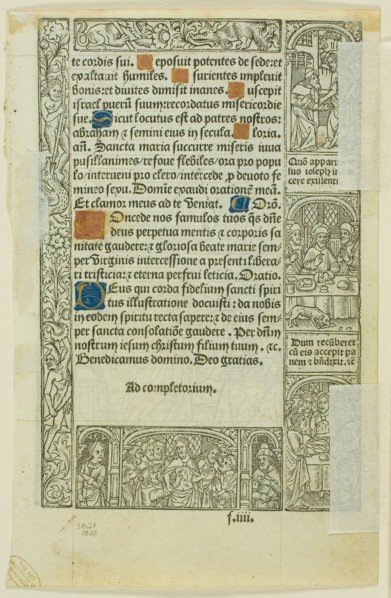 te cordis sui. Deposuit potentes de sede:et
exaltauit humiles. Esurientes impleuit
bonis:et diuites dimisit inanes. Suscepit
israel puerū suum:recordatus misericordie
sue. Sicut locutus est ad patres nostros:
abraham ⁊ semini eius in secula. Gloria.
añ. Sancta maria succurre miseris iuua
pusillanimes/refoue flebiles/ora pro popu
lo/interueni pro clero/intercede ꝓ deuoto fe
mineo sexu. Domine exaudi orationē meā.
Et clamor meus ad te veniat. Orō.
Concede nos famulos tuos qs dñe
deus perpetua mentis ⁊ corporis sa
nitate gaudere:⁊ gloriosa beate marie sem
per virginis intercessione a presenti libera-
ri tristicia:⁊ eterna perfrui leticia. Oratio.
Deus qui corda fidelium sancti spiri
tus illustratione docuisti:da nobis
in eodem spiritu recta sapere:⁊ de eius sem
per sancta consolatiōe gaudere. Per dñm
nostrum iesum christum filium tuum. ⁊c.
Benedicamus domino. Deo gratias.
Ad completorium.
Quō appari
tus ioseph i
cere exilienti
Dum recūberet
cū eis accepit pa
nem ⁊ bñdixit. ⁊c
f.iiii.